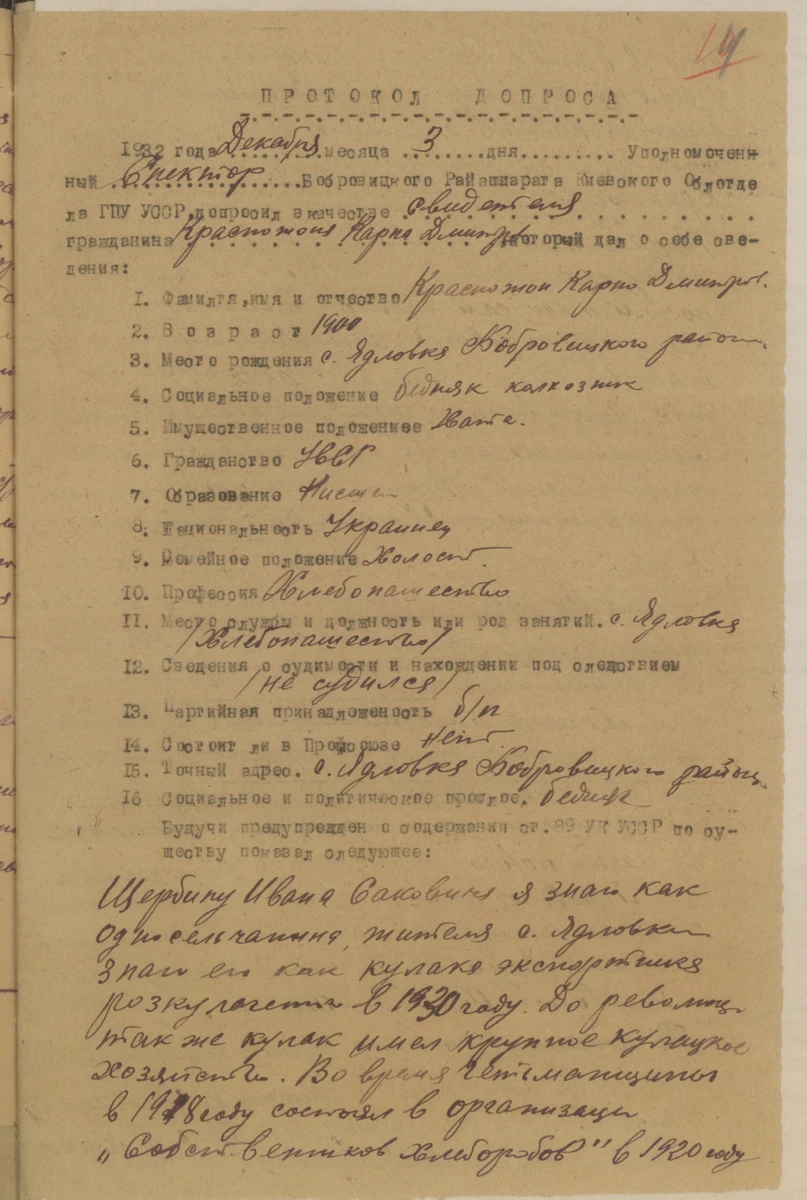 14
ПРОТОКОЛ ДОПРОСА
1932 года Декабря месяца 3 дня ......... Уполномочен-
ный Спектор Бобровицкого Райаппарата Киевского Облотде
ла ГПУ УССР, допросил в качестве свидетеля
гражданина Красножона Карпа Дмитров. который дал о себе све-
дения:
1. Фамилия, имя и отчество Красножон Карпо Дмитров.
2. Возраст 1900
3. Место рождения с. Ядловка Бобровицкого района.
4. Социальное положение бедняк колхозник
5. Имущественное положениее Хата.
6. Гражданство УССР
7. Образование Нисшее
8. Национальность Украинец
9. Семейное положение Холост.
10. Профессия Хлебопашество
11. Место службы и должность или род занятий. с. Ядловка
/Хлебопашество/
12. Сведения о судимости и нахождении под следствием
/не судился/
13. Партийная принадлежность б/п
14. Состоит ли в Профсоюзе Нет.
15. Точный адрес. с. Ядловка Бобровицкого района
16 Социальное и политическое прошлое. бедняк
Будучи предупрежден о содержании ст. 89 УК УССР по су-
ществу показал следующее:
Щербину Ивана Саковича я знаю как
односельчанина, жителя с. Ядловки
знаю его как кулака экспертника
розкулачен в 1930 году. До революци
так же кулак имел крупное кулацкое
хозяйство. Во время Гетьманщины
в 1918 году состоял в организаци
„Собственников Хлеборобов" в 1920 году